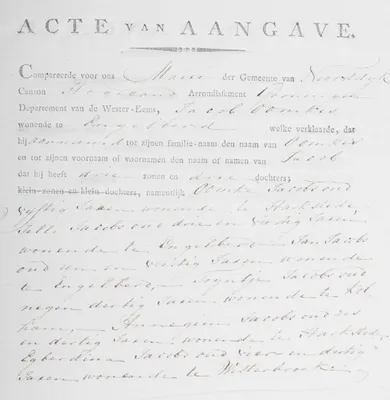 ACTE VAN AANGAVE.
Compareerde voor ons Maire der Gemeente van Noorddyk
Canton Hoogezand Arrondissement Groningen
Departement van de Wester-Eems, Jacob Oomkes
wonende te Engelberd welke verklaarde, dat
hij aanneemd tot zijnen familie-naam den naam van Oomkes
en tot zijnen voornaam of voornamen den naam of namen van Jacob
dat hij heeft drie zonen en drie dochters;
klein-zonen en klein-dochters, namentlijk Oomke Jacobs oud
vyftig Jaren wonende te Harkstede,
Jelle Jacobs oud drie en veertig Jaren
wonende te Engelberd Jan Jacobs
oud een en veertig Jaren wonende
te Engelberd, Tryntje Jacobs oud
negen dertig Jaren wonende te Kol-
ham, Annegien Jacobs oud zes
en dertig Jaren wonende te Harkstede
Egberdina Jacobs oud vier en dertig
Jaren wonende te Westerbroek